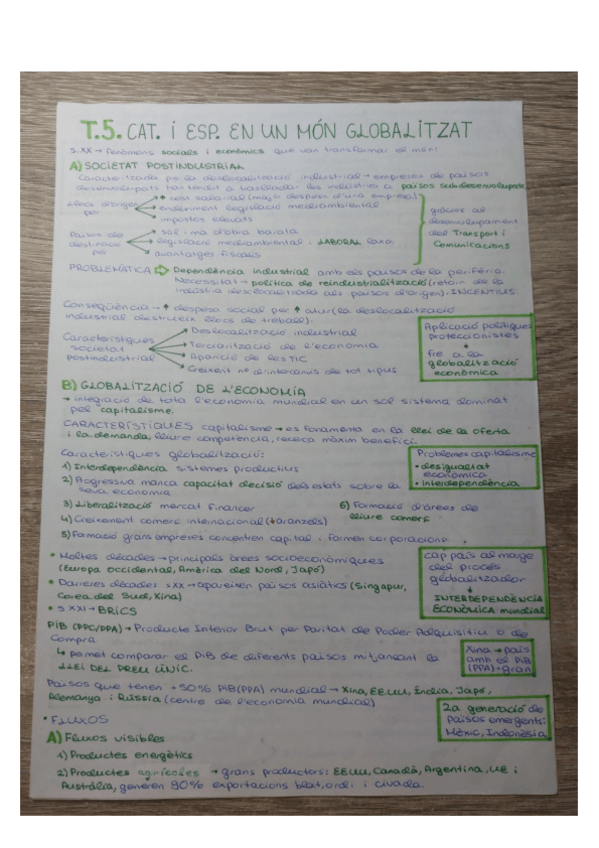 T.5. CAT. I ESP. EN UN MÓN GLOBALITZAT
S.XX → fenòmens socials i econòmics que van transformar el món!
A) SOCIETAT POSTINDUSTRIAL
Caracteritzada per la deslocalització industrial → empreses de països
desenvolupats han tendit a traslladar les indústries a països subdesenvolupats
Llocs d'origen per
↑ cost salarial (major despesa d'una empresa)
enduriment legislació mediambiental
impostos elevats
Països de destinació per
sòl i mà d'obra barata
legislació mediambiental i LABORAL laxa
avantatges fiscals
gràcies al
desenvolupament
del Transport i
Comunicacions
PROBLEMÀTICA ⇨ Dependència industrial amb els països de la perifèria.
Necessitat → política de reindustrialització (retorn de la
indústria deslocalitzada als països d'origen). INCENTIUS
Conseqüència → ↑ despesa social per ↑ atur (la deslocalització
industrial destrueix llocs de treball).
Característiques
societat
postindustrial
Deslocalització industrial
Terciarització de l'economia
Aparició de les TIC
Creixent nº d'intercanvis de tot tipus
Aplicació polítiques
proteccionistes
↓
fre a la
globalització
econòmica
B) GLOBALITZACIÓ DE L'ECONOMIA
→ integració de tota l'economia mundial en un sol sistema dominat
pel capitalisme.
CARACTERÍSTIQUES capitalisme → es fonamenta en la llei de la oferta
i la demanda, lliure competència, recerca màxim benefici.
Característiques globalització:
1) Interdependència sistemes productius
2) Progressiva manca capacitat decisió dels estats sobre la
seva economia
3) Liberalització mercat financer
4) Creixement comerç internacional (↓aranzels)
5) Formació grans empreses concentren capital i formen corporacions
6) Formació d'àrees de
lliure comerç
Problemes capitalisme
• desigualtat
econòmica
• interdependència
• Moltes dècades → principals àrees socioeconòmiques
(Europa occidental, Amèrica del Nord, Japó)
• Darreres dècades s.XX → apareixen països asiàtics (Singapur,
Corea del Sud, Xina)
• S XXI → BRICS
cap país al marge
del procés
globalitzador
↓
INTERDEPENDÈNCIA
ECONÒMICA mundial
PIB (PPC/PPA) → Producte Interior Brut per Paritat de Poder Adquisitiu o de
Compra
↳ permet comparar el PIB de diferents països mitjançant la
LLEI DEL PREU ÚNIC.
Xina → país
amb el PIB
(PPA) + gran
Països que tenen +50% PIB(PPA) mundial → Xina, EEUU, Índia, Japó,
Alemanya i Rússia (centre de l'economia mundial)
2a generació de
països emergents:
Mèxic, Indonèsia
• FLUXOS
A) Fluxos visibles
1) Productes energètics
2) Productes agrícoles → grans productors: EEUU, Canadà, Argentina, UE i
Austràlia, generen 90% exportacions blat, ordi i civada.